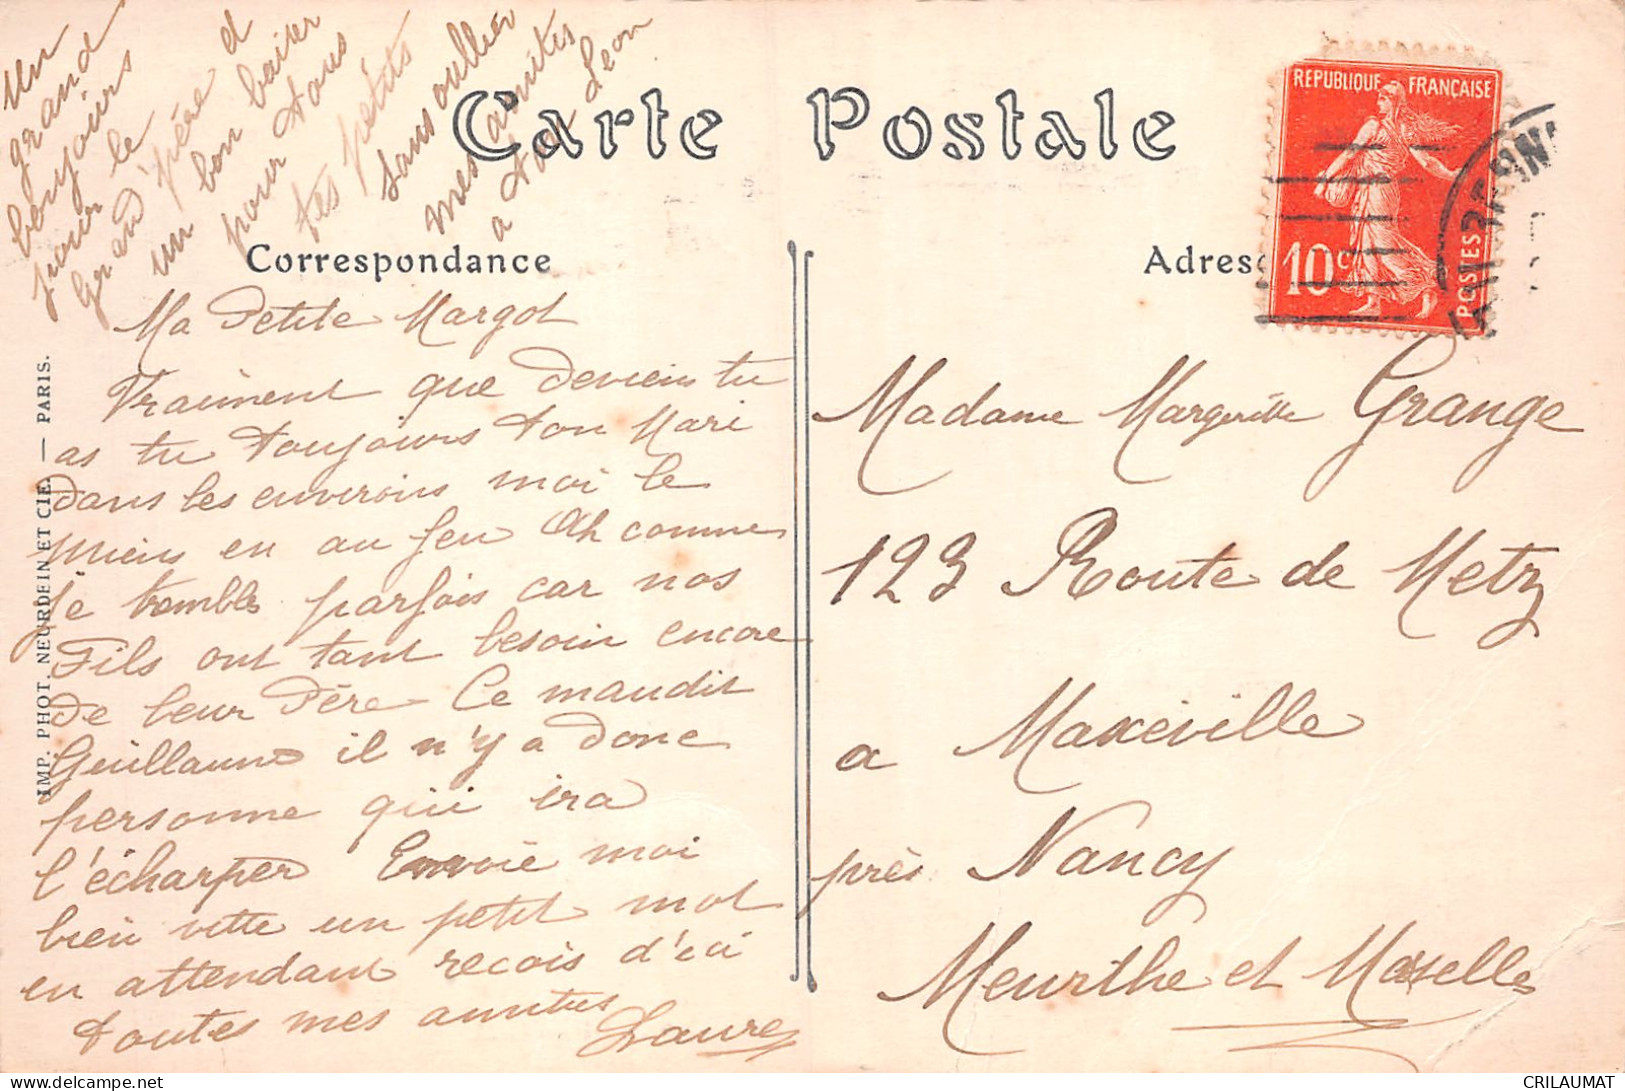 Un
grand
bonjours
pour le
Grand'père et
un bon baiser
pour tous
tes petits
sans oublier
mes amitiés
a ton Leon
Carte Postale
REPUBLIQUE FRANÇAISE
10c
POSTES
Correspondance
Adres
Ma Petite Margot
Vraiment que deviens tu
as tu toujours ton Mari
dans les environs moi le
miens en au feu Ah comme
je tembles parfois car nos
Fils ont tant besoin encore
de leur Père Ce maudit
Guillaume il n'y a donc
personne qui ira
l'écharper Envoie moi
bien vitte un petit mot
en attendant recois d'ici
toutes mes amities
Laure
IMP. PHOT. NEURDEIN ET CIE. — PARIS.
Madame Marguerite Grange
123 Route de Metz
a Maxéville
près Nancy
Meurthe et Moselle
CRILAUMAT